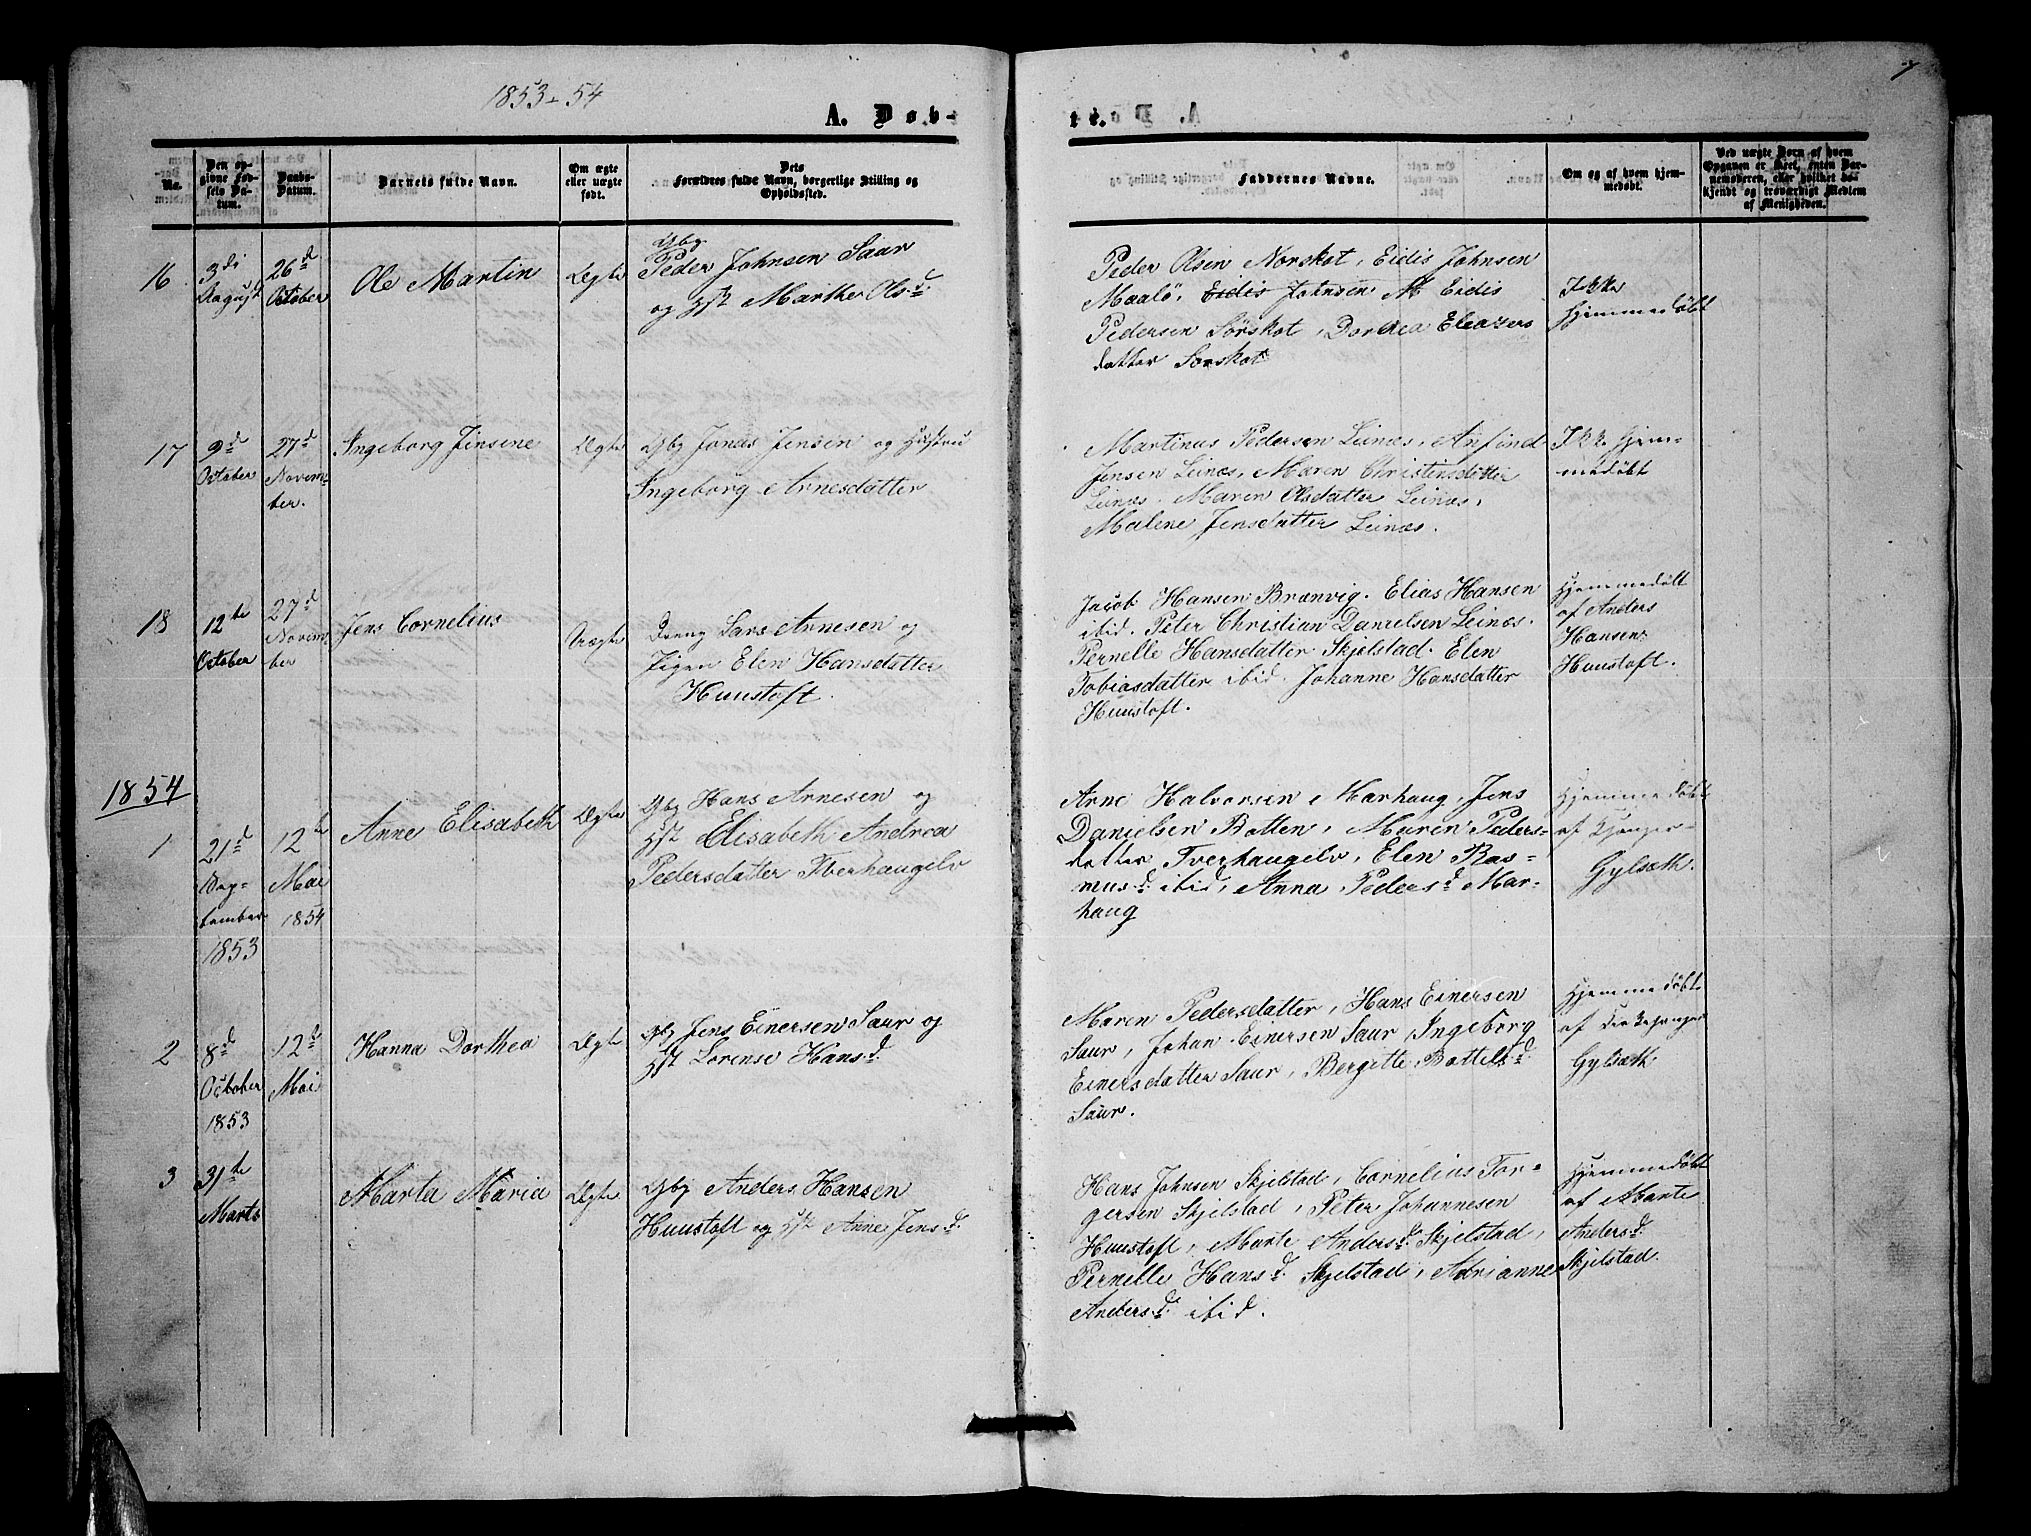 1853-54
7
A. Døb-
te.
No.
Den op-
givne Fød-
sels Da-
tum.
Daabs-
Datum.
Barnets fulde Navn.
Om ægte
eller uægte
født.
Dets
Forældres fulde Navn, borgerlige Stilling og
Opholdssted.
Faddernes Navne.
Om og af hvem hjem-
medøbt.
Ved uægte Børn af hvem
Opgaven er skeet, enten Bar-
nemoderen, eller hvilket be-
kjendt og troværdigt Medlem
af Menigheden.
16
3di
August
26d
October
Ole Martin
Ægte
Gbg
Peder Johnsen Saur
og Hst Marthe Olsd.
Peder Olsen Norskot, Eidis Johnsen
Maalö, Eidis Johnsen M Eidis
Pedersen Sörskot, Dorthea Eleazers
datter Sorskot
Ikke
Hjemmedøbt
17
9d
October
27d
Novem-
ber.
Ingeborg Jensine
Ægte
Gbg Jonas Jensen og Hustru
Ingeborg Arnesdatter
Martinus Pedersen Leinæs, Anfind
Jensen Leinæs, Maren Christinsdatter
Leinæs. Maren Olsdatter Leinæs,
Malene Jensdatter Leinæs.
Ikke Hjem-
medøbt
18
12te
October
27d
Novem-
ber
Jens Cornelius
Uægte
Dreng Lars Arnesen og
Pigen Elen Hansdatter
Huustoft.
Jacob Hansen Brænvig. Elias Hansen
ibid. Peter Christian Danielsen Leinæs.
Pernelle Hansdatter Skjelstad. Elen
Tobiasdatter ibid. Johanne Hansdatter
Huustoft.
Hjemmedøbt
af Anders
Hansen
Huustoft.
1854
1
21d
Sep-
tember
1853
12te
Mai
1854
Anne Elisabeth
Ægte
Gbg Hans Arnesen og
Hst Elisabeth Andrea
Pedersdatter Tverhaugelv
Arne Halvorsen Marhaug, Jens
Danielsen Botten, Maren Peders-
datter Tverhaugelv, Elen Ras-
musd. ibid, Anna Pedersd Mar-
haug
Hjemmedøbt
af
Gylseth.
2
8d
October
1853
12d
Mai
Hanna Dorthea
Ægte
Gbg Jens Einersen Saur og
Hst Lorense Hansd.
Maren Pedersdatter, Hans Einersen
Saur, Johan Einersen Saur, Ingeborg
Einersdatter Saur, Bergitte Bottelsd
Saur.
Hjemmedøbt
af
Gylseth
3
31te
Marts
Marta Maria
Ægte
Gbg Anders Hansen
Huustoft og Hst Anne Jensd.
Hans Johnsen Skjelstad, Cornelius Tor-
gersen Skjelstad, Peter Johannesen
Huustoft, Marte Andersd. Skjelstad,
Pernelle Hansd. Skjelstad, Adrianne
Andersd. ibid.
Hjemmedøbt
af Marte
Andersd.
Skjelstad.